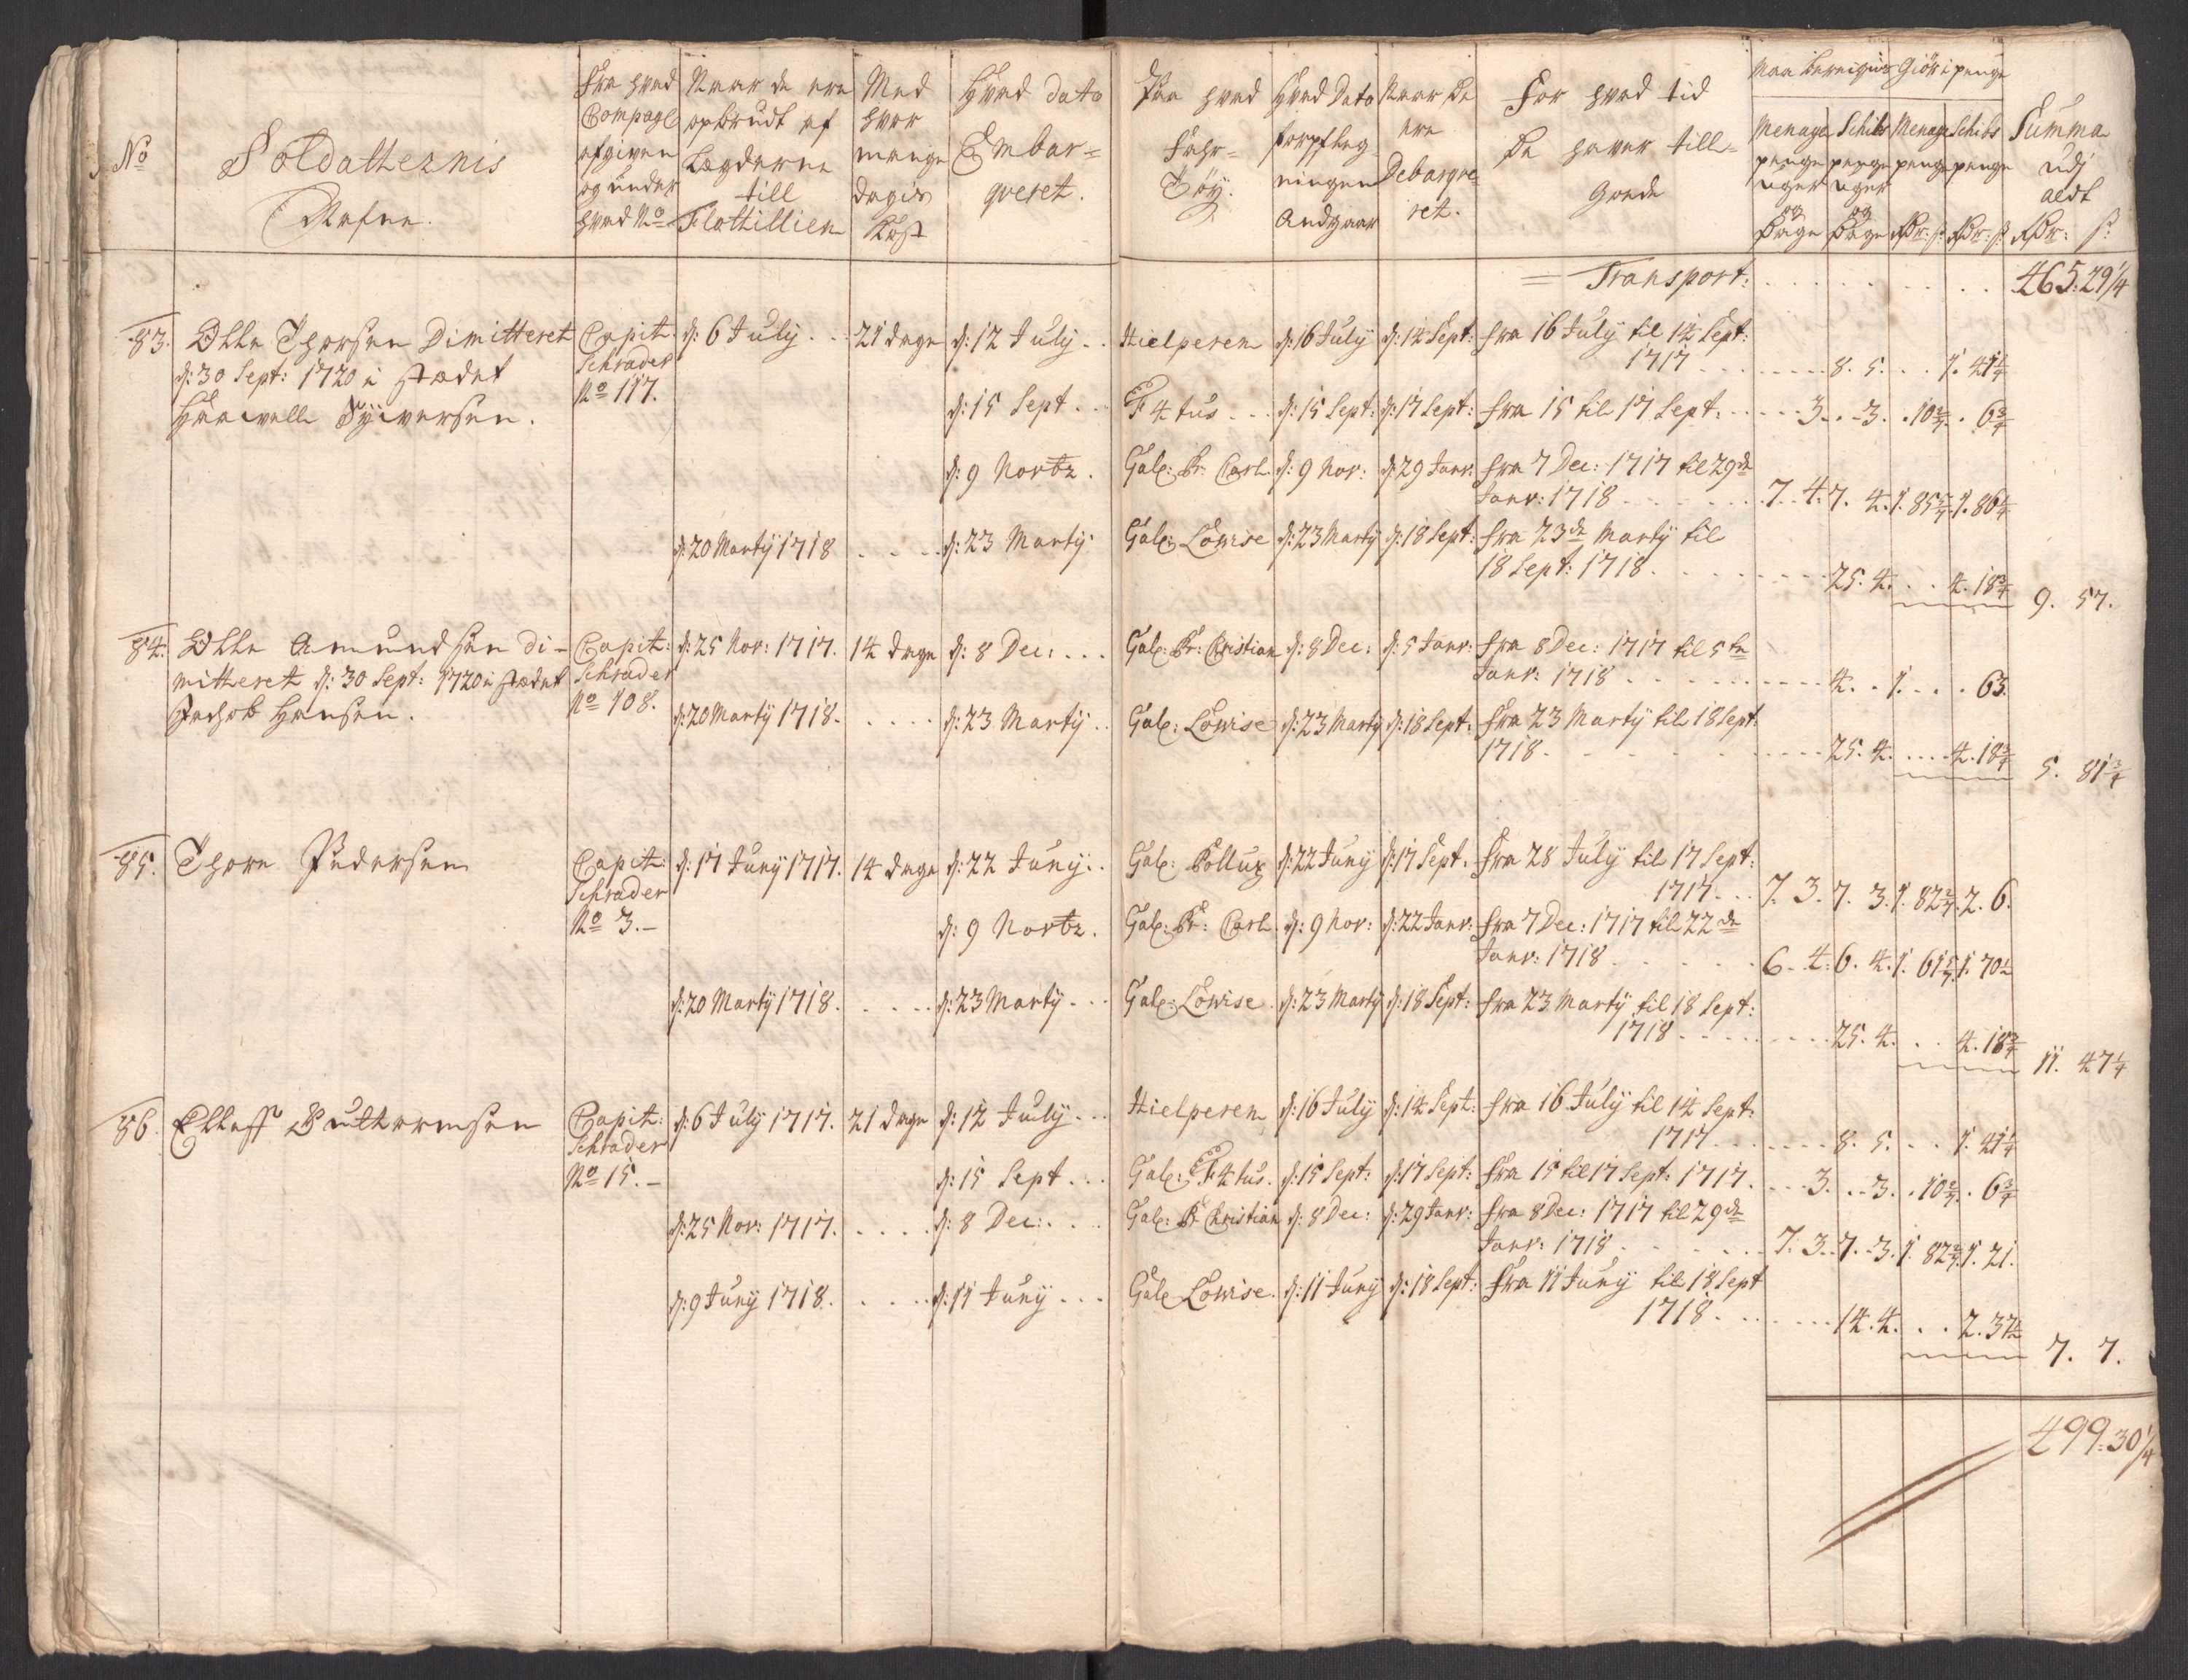 No
Soldatternis
Nafne.
Fra hvad
Compagl
afgiven
og under
hvad No
Naar de ere
opbrudt af
Lægderne
till
Flottillien
Med
hvor
mange
dagis
Kost
Hvad dato
Embar=
qveret.
Paa hvad
Fahr=
Töy.
Hvad Dato
forpfleg=
ningen
Andgaar
Naar De
ere
Debarqve
ret.
For hvad tid
De haver till=
Gode
Menage
penge
uger
og
Dage
Schibs
penge
uger
og
Dage
Menage
penge
Rdr: s:
Schibs
penge
Rdr: s:
Summa
udj
aldt
Rdr: s:
= Transport: . . . . . . . . 465:29 1/4
83. Olle Thorsen Dimitteret
d: 30 Sept: 1720 i stædet
Syiversen.
Capit:
Schrader
No 117.
d: 6 July . . 21 dage d: 12 July . .
Hielperen d: 16 July d: 14 Sept: fra 16 July til 14 Sept:
1717 . . . . . . . 8. 5. . . 1. 41 1/4
d: 15 Sept . .
F4tus . . . d: 15 Sept: d: 17 Sept: fra 15 til 17 Sept: . . . . 3. . . 3. . 10 2/7 . 6 3/4
d: 9 Novbr.
Gal: Pr: Carl. d: 9 Nov: d: 29 Janv: fra 7 Dec: 1717 til 29 de
Janv: 1718 . . . . . . 7. 4. 7. 4. 1. 85 5/7 1. 86 1/4
d: 20 Marty 1718 . . . . d: 23 Marty
Gal: Lowise d: 23 Marty d: 18 Sept: fra 23 de Marty til
18 Sept: 1718 . . . . . . . . 25. 4. . . 4. 18 3/4
9. 57.
84. Olle Amundsen di-
mitteret d: 30 Sept: 1720 i stædet
Jachob Hansen.
Capit:
Schrader
No 108.
d: 25 Nov: 1717. 14 dage d: 8 Dec: . . .
Gal: Pr: Cristian d: 8 Dec: d: 5 Janv: fra 8 Dec: 1717 til 5 te
Janv: 1718 . . . . . . . . 4. . 1. . . . 63.
d: 20 Marty 1718. . . . . d: 23 Marty . .
Gal: Lowise d: 23 Marty d: 18 Sept: fra 23 Marty til 18 Sept:
1718. . . . . . . . . 25. 4. . . . . 4. 18 3/4
5. 81 3/4
85. Thore Pedersen
Capit:
Schrader
No 3.-
d: 17 Juny 1717. 14 dage d: 22 Juny: .
Gal: Pollux d: 22 Juny d: 17 Sept. fra 28 July til 17 Sept:
1717. . . 7. 3. 7. 3. 1. 82 2/7. 2. 6.
d: 9 Novbr.
Gal: Pr: Carl. d: 9 Nov: d: 22 Janv: fra 7 Dec: 1717 til 22 de
Janv: 1718 . . . . . . 6. 4. 6. 4. 1. 61 5/7 1. 70 1/2
d: 20 Marty 1718. . . . . d: 23 Marty . . .
Gal: Lowise. d: 23 Marty d: 18 Sept: fra 23 Marty til 18 Sept:
1718 . . . . . . . 25. 4. . . 4. 18 3/4
11. 47 1/4
86. Elleff Guttormsen
Capit:
Schrader
No 15.-
d: 6 July 1717. 21 dage d: 12 July . . .
Hielperen d: 16 July d: 14 Sept: fra 16 July til 14 Sept:
1717 . . . . . . . 8. 5. . . 1. 41 1/4
d: 15 Sept . . .
Gal: F4tus. d: 15 Sept: d: 17 Sept: fra 15 til 17 Sept: 1717. . . . 3. . . 3. . 10 2/7. . 6 3/4
d: 25 Nov: 1717. . . . . d: 8 Dec: . . .
Gal: Pr Christian d: 8 Dec: d: 29 Janv: fra 8 Dec: 1717 til 29 de
Janv: 1718 . . . . . . 7. 3. . 7. . 3. 1. 82 2/7. 1. 21.
d: 9 Juny 1718. . . . . d: 11 Juny . . .
Gal Lowise. d: 11 Juny d: 18 Sept: fra 11 Juny til 18 Sept
1718. . . . . . . 14. 4. . . . 2. 37 1/2
7. 7.
499:30 1/4